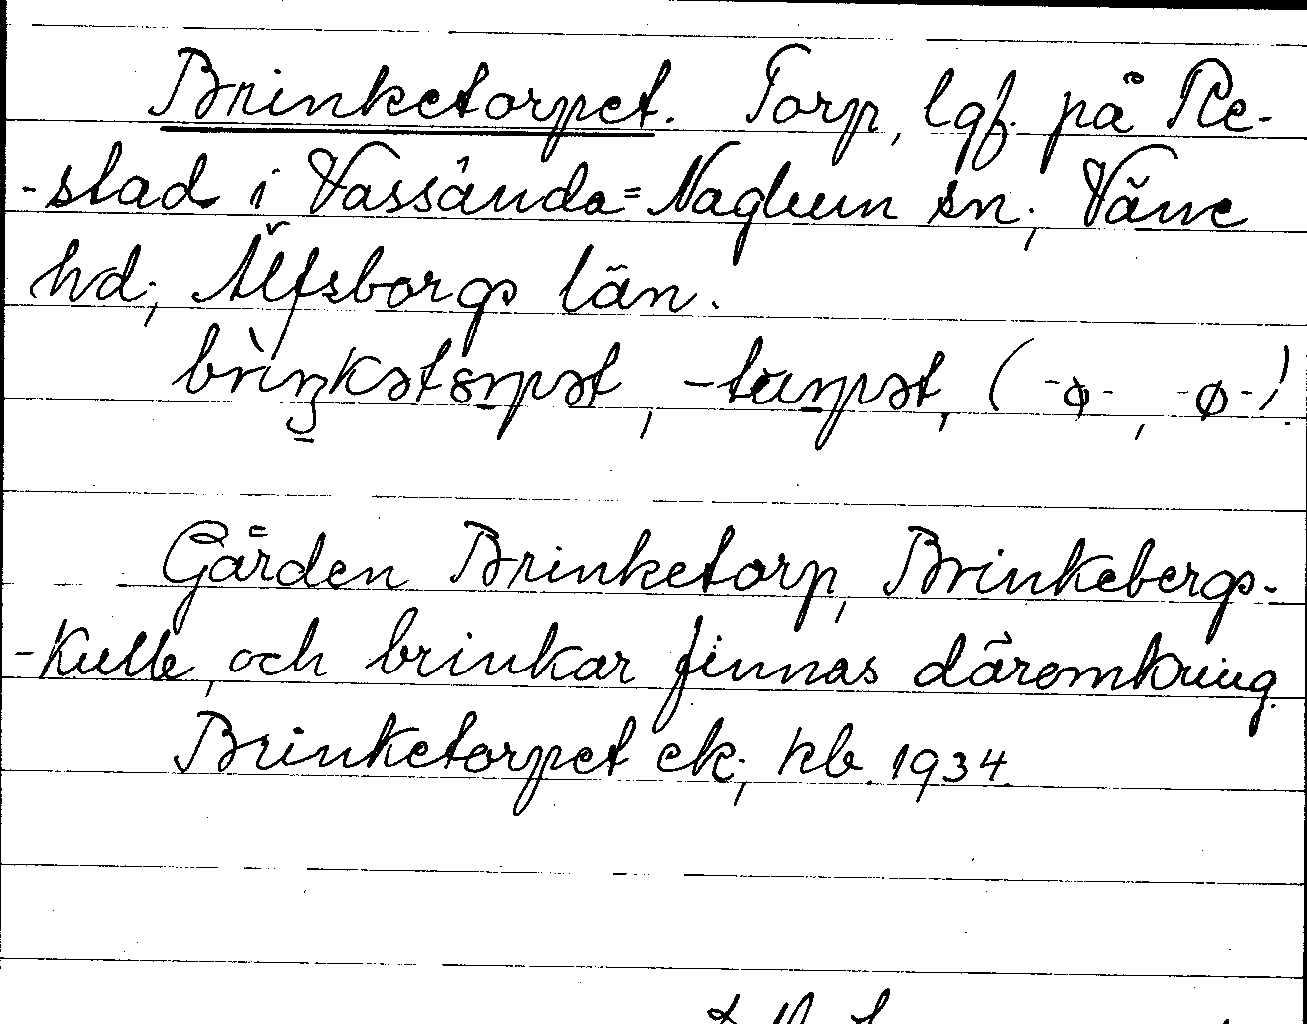 Brinketorpet. Torp, lgf. på Re-
-stad i Vassända=Naglum sn; Väne
hd; Älfsborgs län.
Gården Brinketorp, Brinkebergs-
-kulle, och brinkar finnas däromkring.
Brinketorpet ek; kb. 1934.